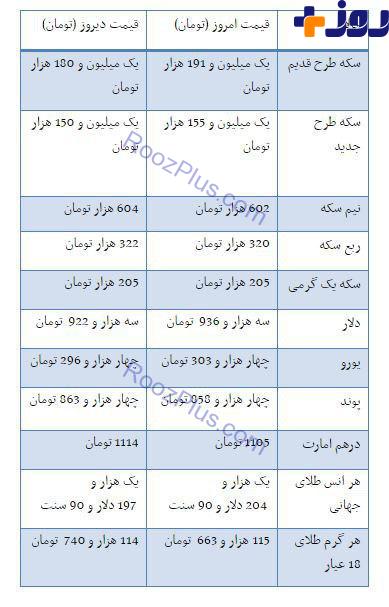 روز
قیمت امروز (تومان) قیمت دیروز (تومان)
سکه طرح قدیم یک میلیون و 191 هزار یک میلیون و 180 هزار
تومان تومان
سکه طرح یک میلیون و 155 هزار یک میلیون و 150 هزار
جدید تومان تومان
RoozPlus.com
نیم سکه 602 هزار تومان 604 هزار تومان
ربع سکه 320 هزار تومان 322 هزار تومان
سکه یک گرمی 205 هزار تومان 205 هزار تومان
دلار سه هزار و 936 تومان سه هزار و 922 تومان
یورو چهار هزار و 303 تومان چهار هزار و 296 تومان
پوند چهار هزار و 858 تومان چهار هزار و 863 تومان
RoozPlus.com
درهم امارت 1105 تومان 1114 تومان
هر انس طلای یک هزار و یک هزار و
جهانی 204 دلار و 90 سنت 197 دلار و 90 سنت
هر گرم طلای 115 هزار و 663 تومان 114 هزار و 740 تومان
18 عیار